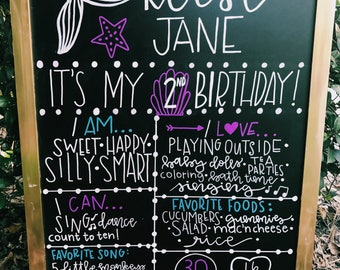 JANE
IT'S MY 2ND BIRTHDAY!
I AM...
SWEET · HAPPY
SILLY · SMART
I LOVE...
PLAYING OUTSIDE
baby dolls · TEA PARTIES
coloring · bath time
singing
I CAN...
SING · dance
count to ten!
FAVORITE FOODS:
CUCUMBERS
SALAD · mac'n cheese
rice
FAVORITE SONG:
5 little monkeys
30